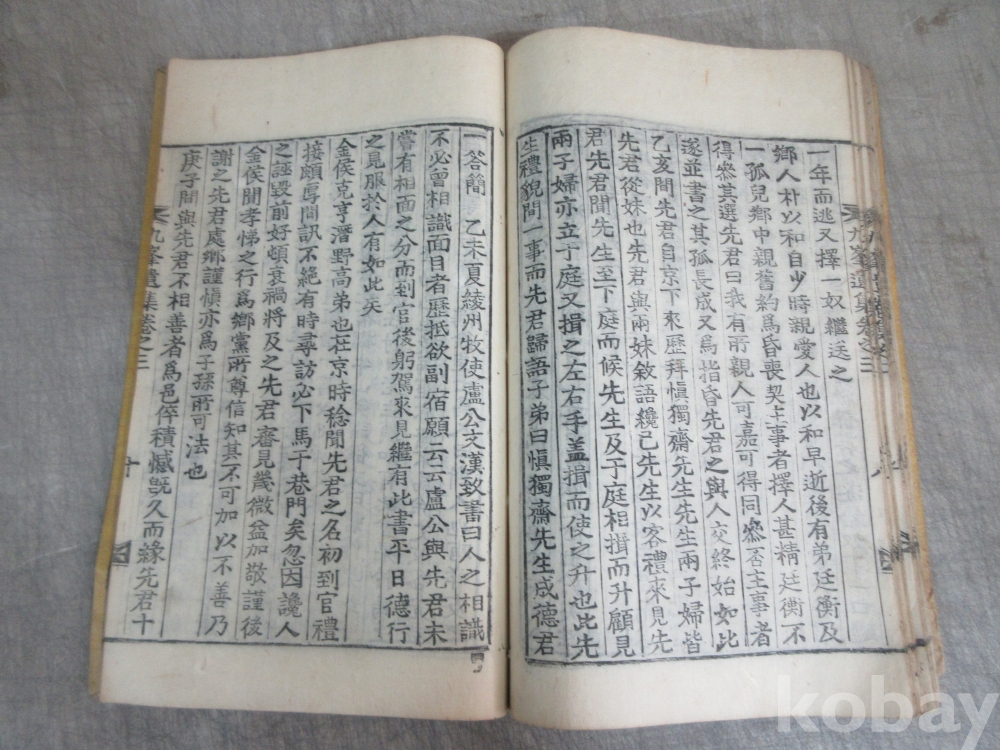 一年而逃又擇一奴繼送之
鄉人朴以和自少時親愛人也以和早逝後有弟廷衡及
一孤兒鄉中親舊約爲昏喪契主事者擇人甚精廷衡不
得參其選先君曰我有所親人可嘉可得同參否主事者
遂並書之其孤長成又爲指昏先君之與人交終始如此
乙亥間先君自京下來歷拜愼獨齋先生先生兩子婦皆
先君從妹也先君與兩妹敘語纔已先生以客禮來見先
君先君聞先生至下庭而候先生及于庭相揖而升顧見
兩子婦亦立于庭又揖之左右手盖揖而使之升也此先
生禮貌間一事而先君歸語子弟曰愼獨齋先生成德君
一答簡 乙未夏綾州牧使盧公文漢致書曰人之相識
不必曾相識面目者歷抵欲副宿願云云盧公與先君未
嘗有相面之分而到官後躬駕來見繼有此書平日德行
之見服於人有如此矣
金侯克亨潛野高弟也在京時稔聞先君之名初到官禮
接頗厚問訊不絶有時尋訪必下馬于巷門矣忽因讒人
之誣毀前好頓衰禍將及之先君審見幾微益加敬謹後
金侯聞孝悌之行爲鄉黨所尊信知其不可加以不善乃
謝之先君處鄉謹愼亦爲子孫所可法也
庚子間與先君不相善者爲邑倅積憾旣久而緣先君十
九峯遺集卷之三
十
kobay